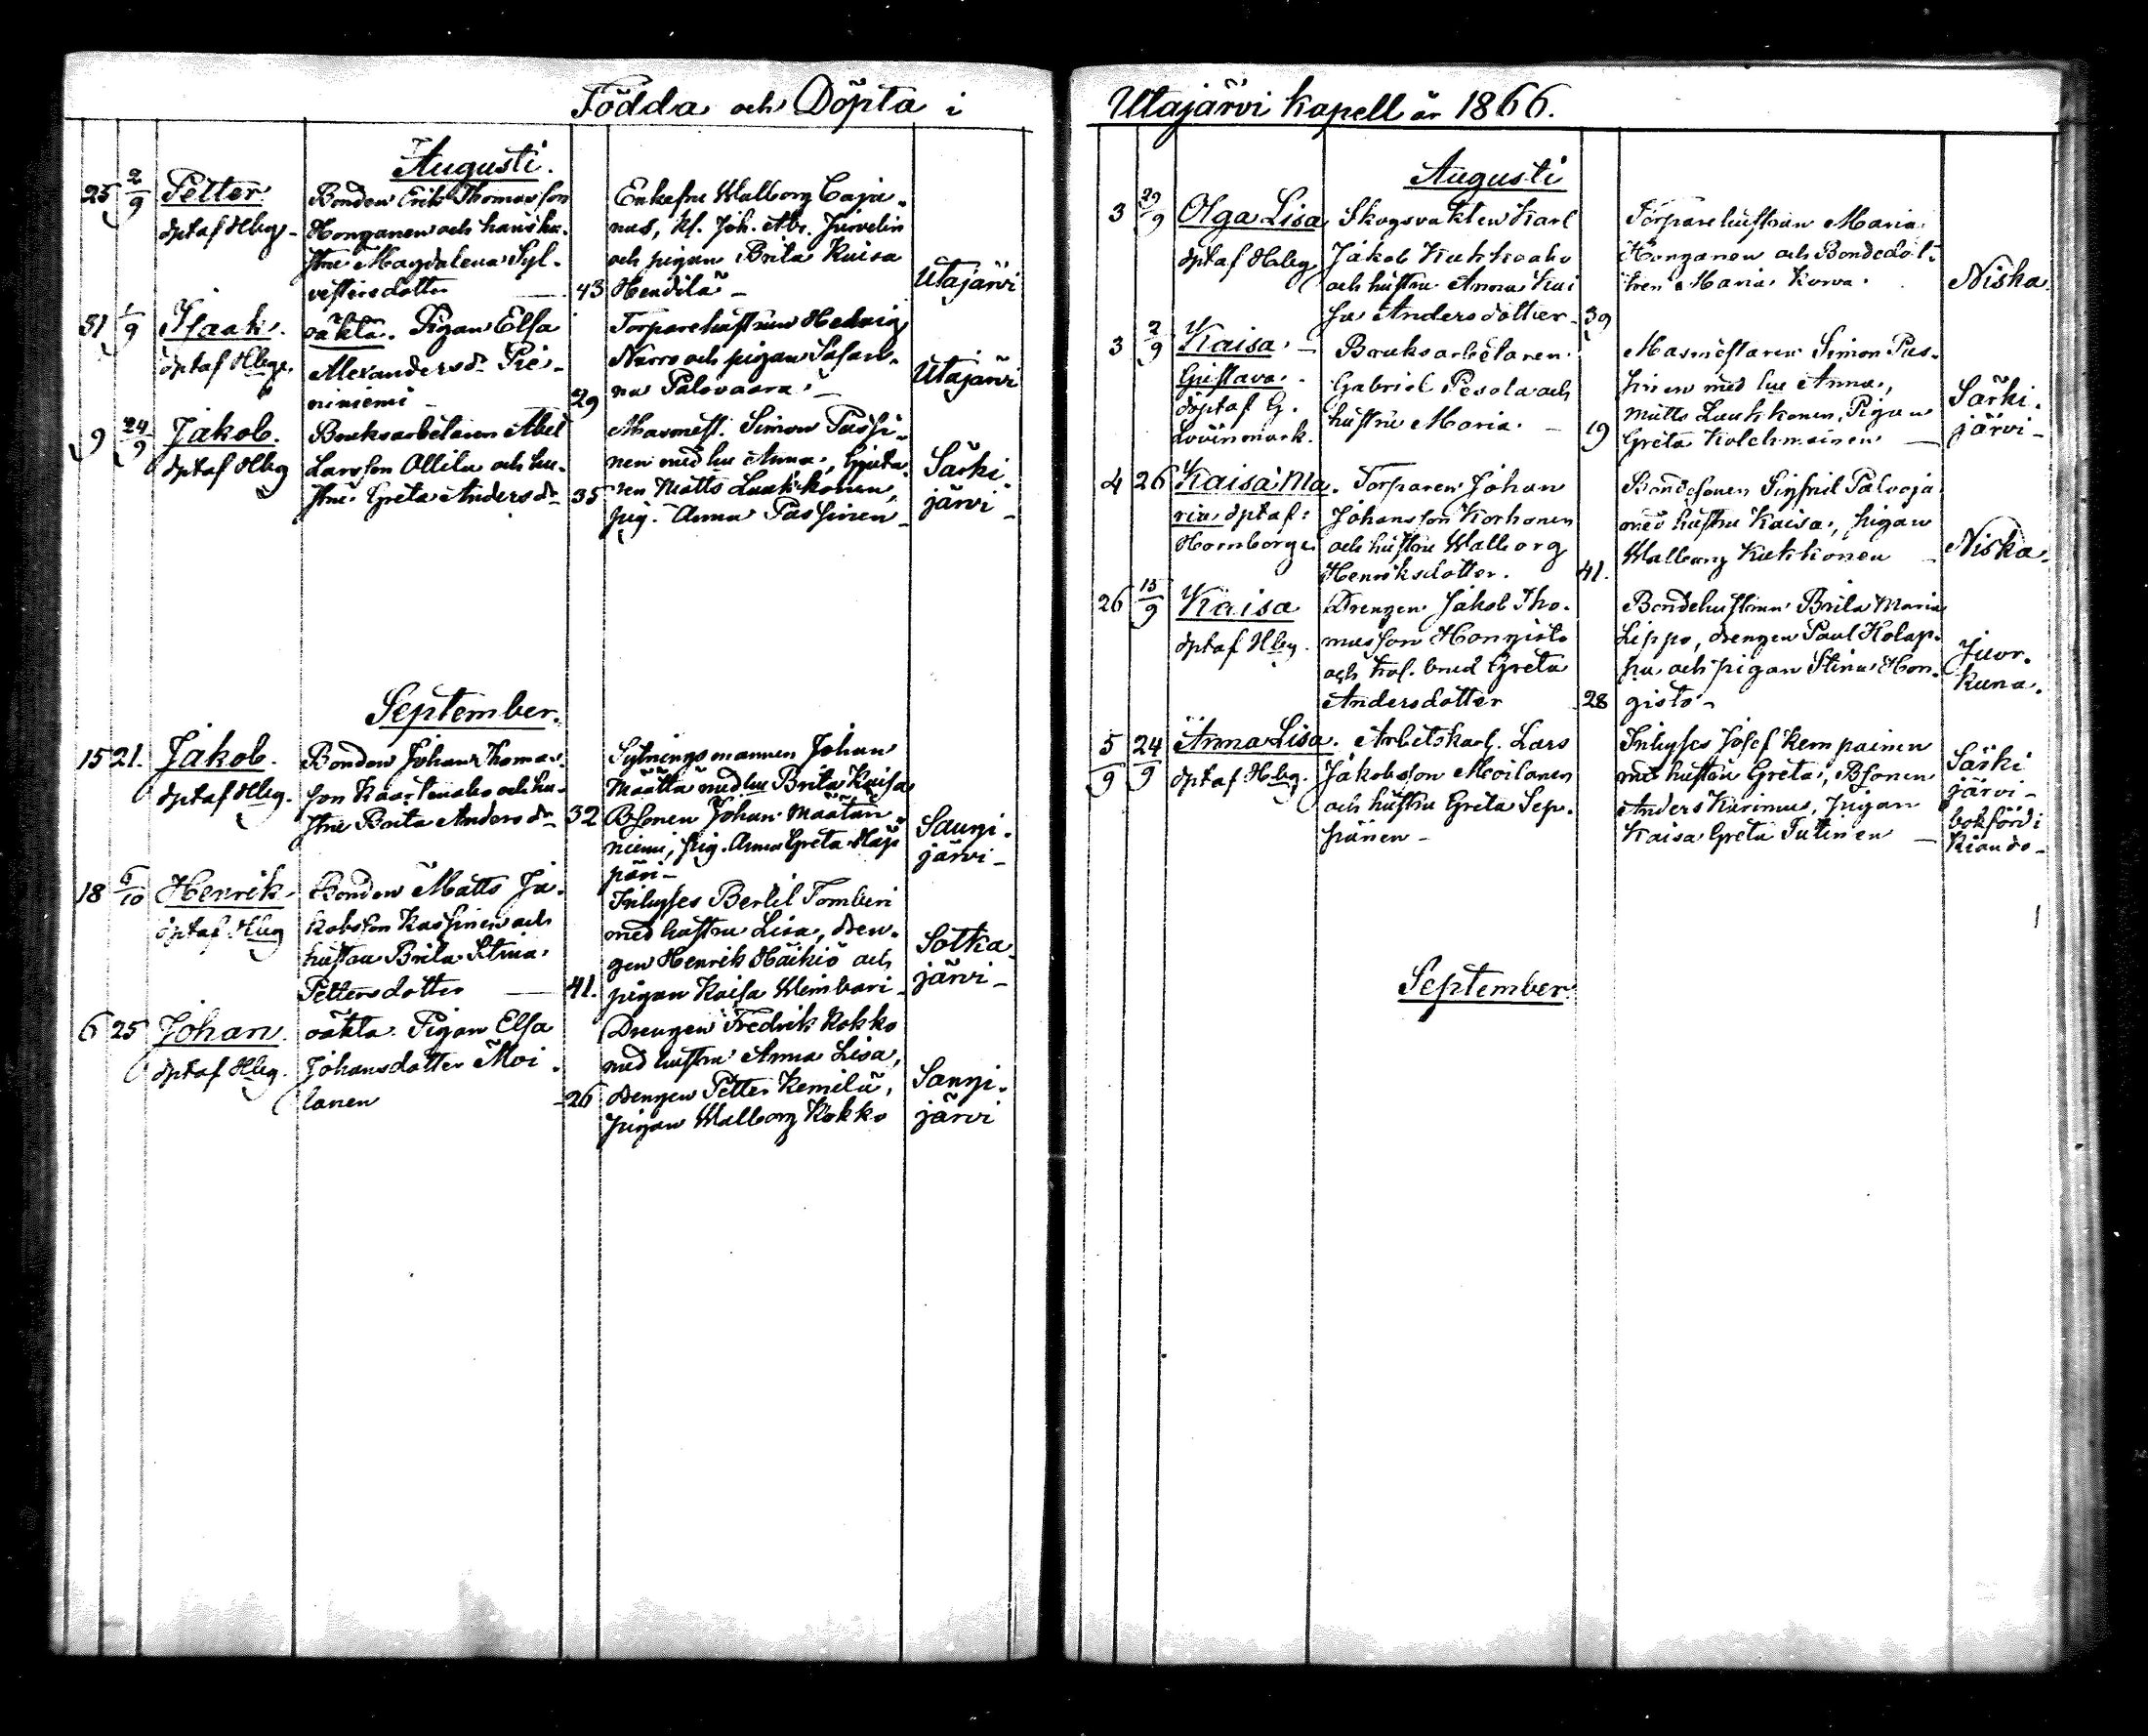 Födda och Döpta i
Augusti.
25 2/9 Petter
döpt af Hbrg
Bonden Erik Thomasson
Honganen och hans hu-
stru Magdalena Syl-
vestersdotter
43
Enkefru Walborg Caja-
nus, Kl. Joh. Abr. Jurvelin
och pigan Brita Kaisa
Hendilä
Utajärvi
31 1/9 Isaak.
döpt af Hbrg.
oäkta. Pigan Elsa
Alexandersdr Pie-
niniemi
29
Torparehustrun Hedvig
Nurro och pigan Safan-
na Palovaara.
Utajärvi
9 24/9 Jakob.
döpt af Hbrg
Bruksarbetaren Abel
Larsson Ollila och hu-
stru Greta Andersdr
35
Masmest. Simon Passi-
nen med hu Anna,
Matts Laukkonen,
pig. Anna Passinen
Särki-
järvi
September.
15 21. Jakob.
döpt af Hbrg.
Bonden Johan Thomas-
son Kaartenaho och hu-
stru Brita Andersdr
32
Sytningsmannen Johan
Määttä med hu Brita Kaisa
Bsonen Johan Määttän-
niemi, pig. Anna Greta
Saugi-
järvi
18 Henrik
döpt af Hbrg
Bonden Matts Ja-
kobsson Kassinen och
hustru Brita Stina
Pettersdotter
41.
Inhyses Bertil Tomberi
med hustru Lisa, dren-
gen Henrik Häikiö och
pigan Kaisa Wimbari
Sotka-
järvi
6 25 Johan.
döpt af Hbrg.
oäkta. Pigan Elsa
Johansdotter Moi-
lanen
26
Drengen Fredrik Kokko
med hustru Anna Lisa,
drengen Petter Kemilä,
pigan Walborg Kokko
Sangi-
järvi
Utajärvi Kapell år 1866.
Augusti
3 29/9 Olga Lisa
döpt af Hbrg
Skogsvakten Karl
Jakob Kukkoaho
och hustru Anna Kai
sa Andersdotter
39
Torparehustrun Maria
Honganen och Bondedot-
tren Maria Korva.
Niska
3 2/9 Kaisa
Gustava.
döpt af G.
Lovinmark.
Bruksarbetaren
Gabriel Pesola och
hustru Maria.
19
Masmestaren Simon Pas-
sinen med hu Anna,
Matts Laukkonen, Pigan
Greta Kolehmainen
Särki-
järvi
4 26 Kaisa Ma-
ria, döpt af:
Hornborg
Torparen Johan
Johansson Korhonen
och hustru Walborg
Henriksdotter.
41.
Bondesonen Sigfrid Palooja
med hustru Kaisa, pigan
Walborg Kukkonen
Niska.
26 15/9 Kaisa
döpt af Hbrg.
Drengen Jakob Tho-
masson Hongisto
och trol. brud Greta
Andersdotter
28
Bondehustrun Brita Maria
Lippo, drengen Paul Holap-
pa och pigan Stina Hon-
gisto
Juor-
kuna.
5/9 24/9 Anna Lisa.
döpt af Hbrg.
Arbetskarl. Lars
Jakobsson Moilanen
och hustru Greta Sep-
pänen
Inhyses Josef Kempainen
med hustru Greta, Bsonen
Anders Karinus, pigan
Kaisa Greta Tutinen
Särki
järvi
bokförd i
Kiando
September